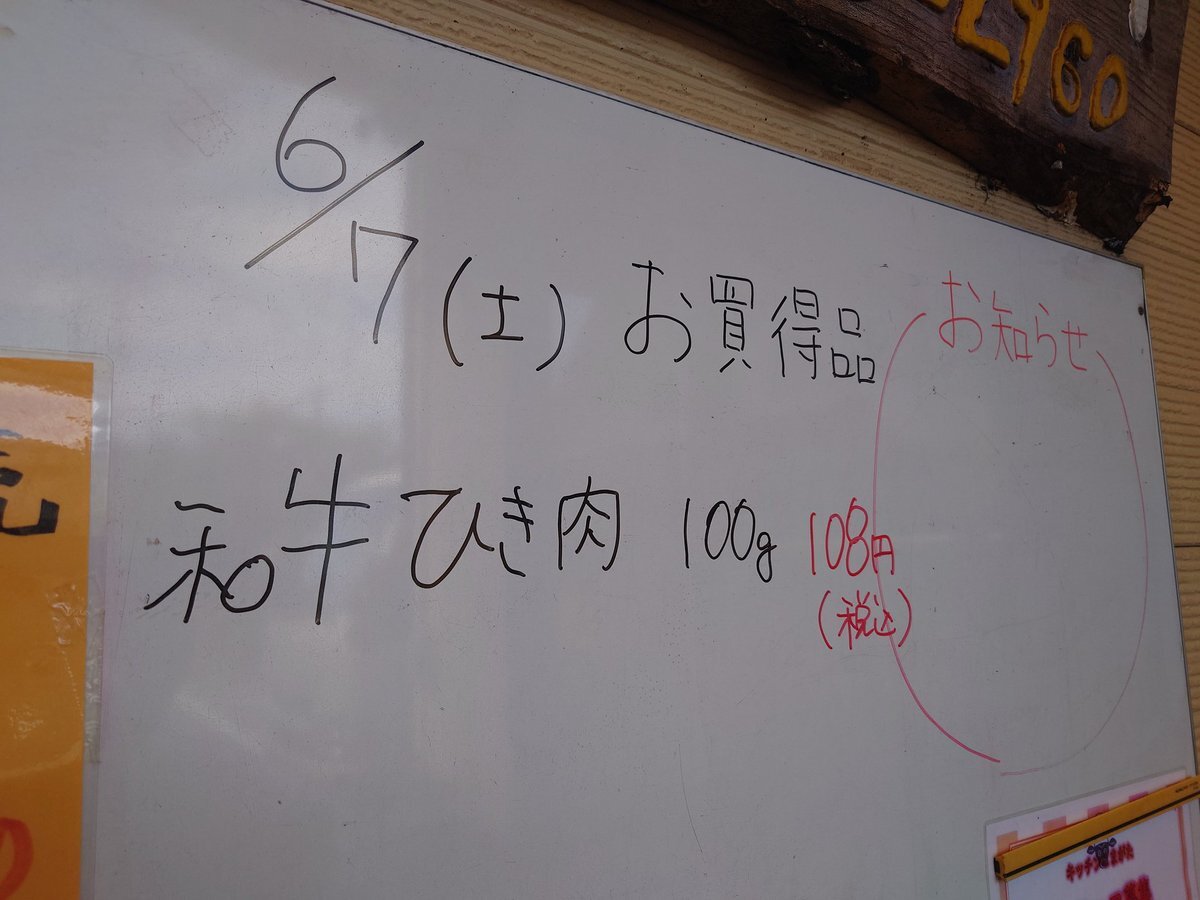 6/17(土) お買得品
お知らせ
和牛ひき肉 100g 108円
(税込)
2960
キッチン